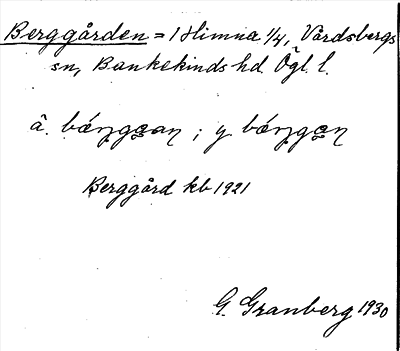 Berggården = 1 Himna 1/4, Vårdsbergs
sn, Bankekinds hd. Ögl. l.
å. ; y.
Berggård kb 1921
G. Granberg 1930